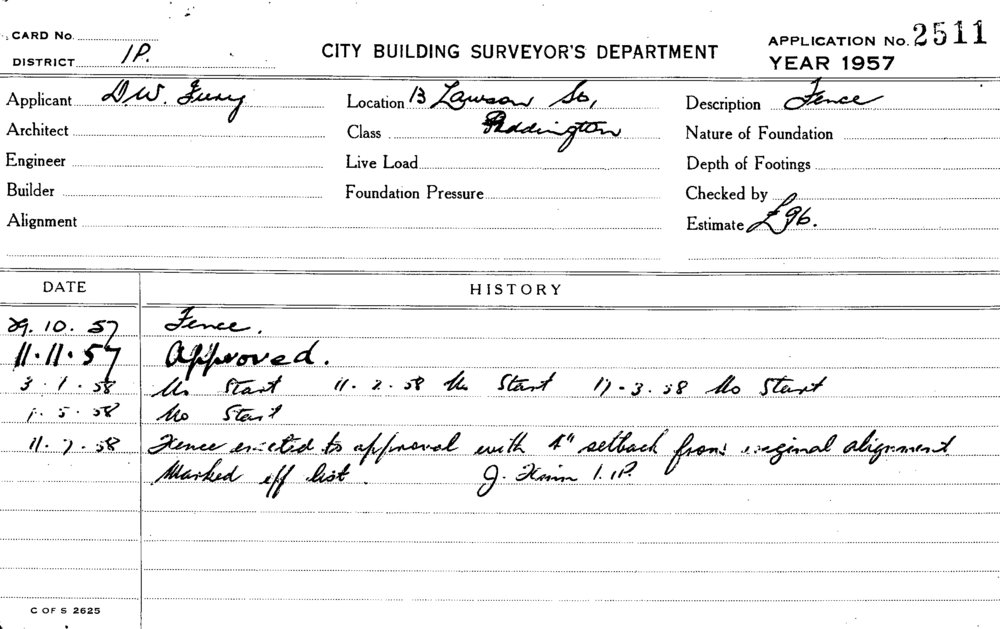 CARD No.
DISTRICT 1P.
CITY BUILDING SURVEYOR'S DEPARTMENT
APPLICATION No. 2511
YEAR 1957
Applicant D.W. Location 13 Lawson St, Description Fence
Architect Class Paddington Nature of Foundation
Engineer Live Load Depth of Footings
Builder Foundation Pressure Checked by
Alignment Estimate £96.
DATE HISTORY
29.10.57 Fence.
11.11.57 Approved.
3.1.58 No Start 11.2.58 No Start 17.3.58 No Start
1.5.58 No Start
11.7.58 Fence erected to approval with 4" setback from original alignment
Marked off list. J. 1.1P.
C OF S 2625